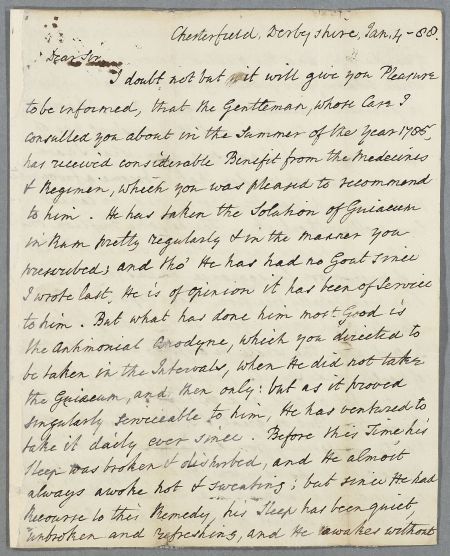 Chesterfield, Derbyshire, Jan. 4 - 88.
Dear Sir,
I doubt not but it will give you Pleasure
to be informed, that the Gentleman, whose Case I
consulted you about in the Summer of the Year 1786,
has received considerable Benefit from the Medecines
& Regimen, which you was pleased to recommend
to him. He has taken the Solution of Guiacum
in Rum pretty regularly & in the manner you
prescribed; and tho' He has had no Gout since
I wrote last, He is of opinion it has been of Service
to him. But what has done him most Good is
the Antimonial Anodyne, which you directed to
be taken in the Intervals, when He did not take
the Guiacum, and then only: but as it proved
singularly serviceable to him, He has ventured to
take it daily ever since. Before this Time, his
Sleep was broken & disturbed, and He almost
always awoke hot & sweating; but since He had
Recourse to this Remedy, his Sleep has been quiet,
unbroken and refreshing, and He awakes without